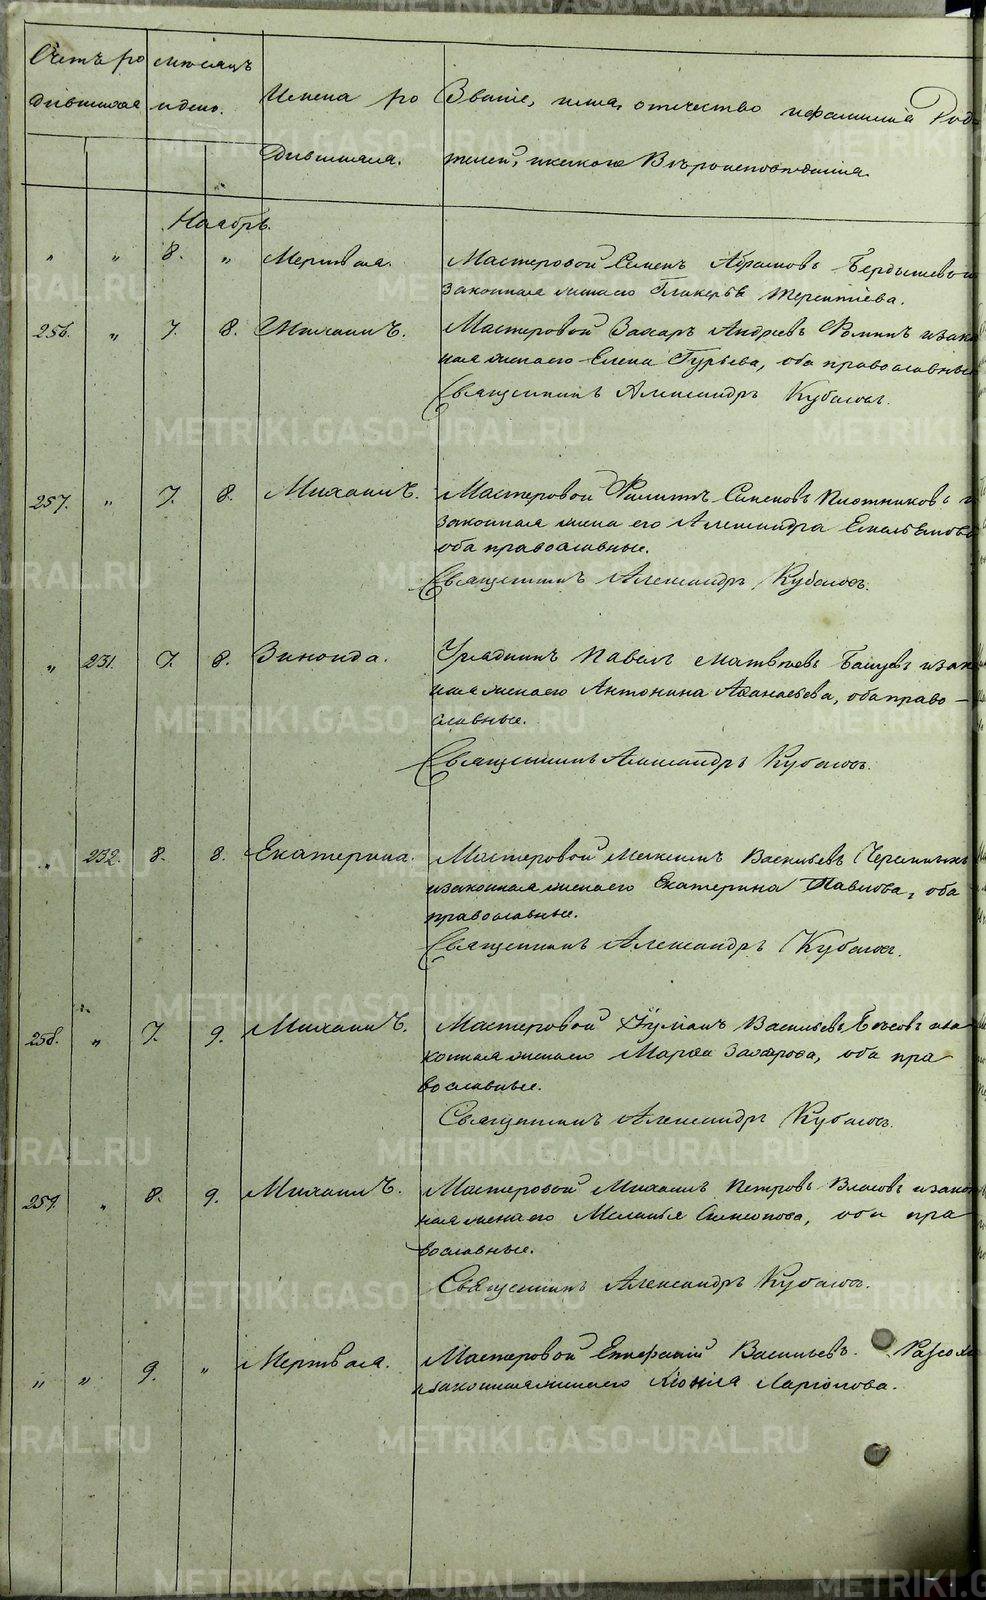 METRIKI.GASO-URAL.RU
Счетъ ро мѣсяцъ
дившихся и день. Имена ро Званіе, имя, отчество и фамилія Роди
дившихся. телей, и какого Вѣроисповѣданія.
Ноябрь.
" " 8. " Мертвая. Мастеровой Семенъ Абрамовъ Бердышевъ и
законная жена его Гликерія Терентіева.
256. " 7. 8. Михаилъ. Мастеровой Захаръ Андреевъ Ѳоминъ и закон
ная жена его Елена Гурьева, оба православные
Священникъ Александръ Кубасовъ.
257. " 7. 8. Михаилъ. Мастеровой Филиппъ Семеновъ Плотниковъ и
законная жена его Александра Емельянова
оба православные.
Священникъ Александръ Кубасовъ.
" 231. 7. 8. Зиноида. Урядникъ Павелъ Матвѣевъ и закон
ная жена его Антонина Аѳанасьева, оба право-
славные.
Священникъ Александръ Кубасовъ.
" 232. 8. 8. Екатерина. Мастеровой Максимъ Васильевъ
и законная жена его Екатерина Павлова, оба
православные.
Священникъ Александръ Кубасовъ.
258. " 7. 9. Михаилъ. Мастеровой Васильевъ и за
конная жена его Марѳа Захарова, оба пра
вославные.
Священникъ Александръ Кубасовъ.
259. " 8. 9. Михаилъ. Мастеровой Михаилъ Петровъ Власовъ и закон
ная жена его Меланья Симонова, оба пра
вославные.
Священникъ Александръ Кубасовъ.
" " 9. " Мертвая. Мастеровой Епифаній Васильевъ
и законная жена его Іонія Ларіонова.